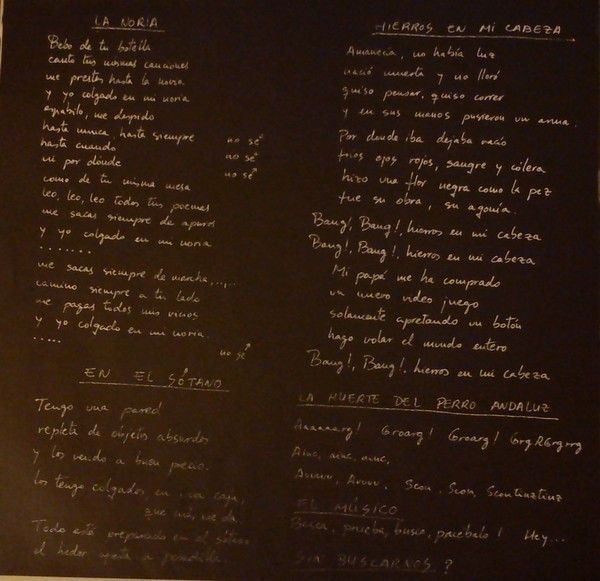 LA NORIA
Bebo de tu botella
canto tus mismas canciones
me prestas hasta la novia
y yo colgado en mi noria
espabilo, me despido
hasta nunca, hasta siempre no sé
hasta cuando no sé
ni por dónde no sé
como de tu misma mesa
leo, leo, leo todos tus poemas
me sacas siempre de apuros
y yo colgado en mi noria
.......
me sacas siempre de marcha,.....
camino siempre a tu lado
me pagas todos mis vicios
y yo colgado en mi noria.
..... no sé
EN EL SÓTANO
Tengo una pared
repleta de objetos absurdos
y los vendo a buen precio.
los tengo colgados, en una caja,
que más me da
Todo está preparado en el sótano
el hedor apesta a
HIERROS EN MI CABEZA
Amanecía, no había luz
nació muerta y no lloró
quiso pensar, quiso correr
y en sus manos pusieron un arma.
Por donde iba dejaba vacío
fríos ojos rojos, sangre y cólera
hizo una flor negra como la pez
fue su obra, su agonía.
Bang!, Bang!, hierros en mi cabeza
Bang!, Bang!, hierros en mi cabeza
Mi papá me ha comprado
un nuevo video juego
solamente apretando un botón
hago volar el mundo entero
Bang!, Bang!, hierros en mi cabeza
LA MUERTE DEL PERRO ANDALUZ
Aaaaaarg! Groarg! Groarg! GrgRGrgrrg
Ainc, ainc, ainc,
Auuuu, Auuuu. Scon, Scon, Scontinztinz
EL MÚSICO
Busca, prueba, busca, pruébalo! Hey...
SIN BUSCARNOS?